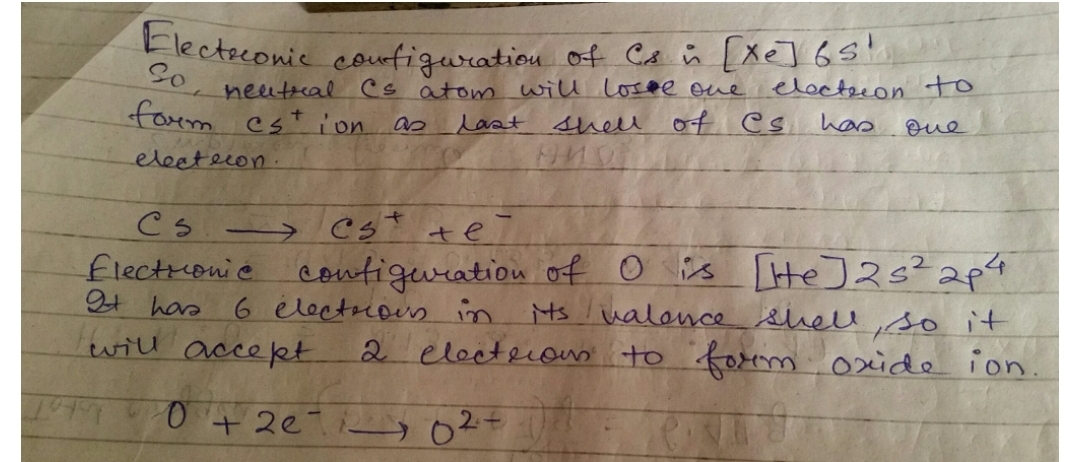 Electronic configuration of Cs is [Xe] 6s¹
So, neutral Cs atom will lose one electron to
form Cs⁺ ion as last shell of Cs has one
electron.
Cs → Cs⁺ + e⁻
Electronic configuration of O is [He] 2s² 2p⁴
It has 6 electrons in its valence shell, so it
will accept 2 electrons to form oxide ion.
O + 2e⁻ → O²⁻